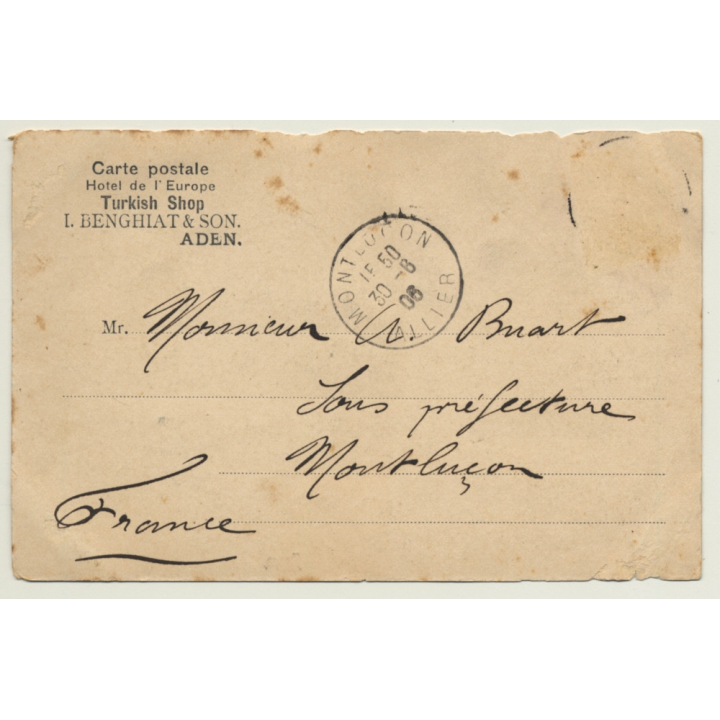 Carte postale
Hotel de l'Europe
Turkish Shop
I. BENGHIAT & SON.
ADEN.
MONTLUÇON
15 50
30 8
06
ALLIER
Mr. Monsieur A. Buart
Sous préfecture
Montluçon
France